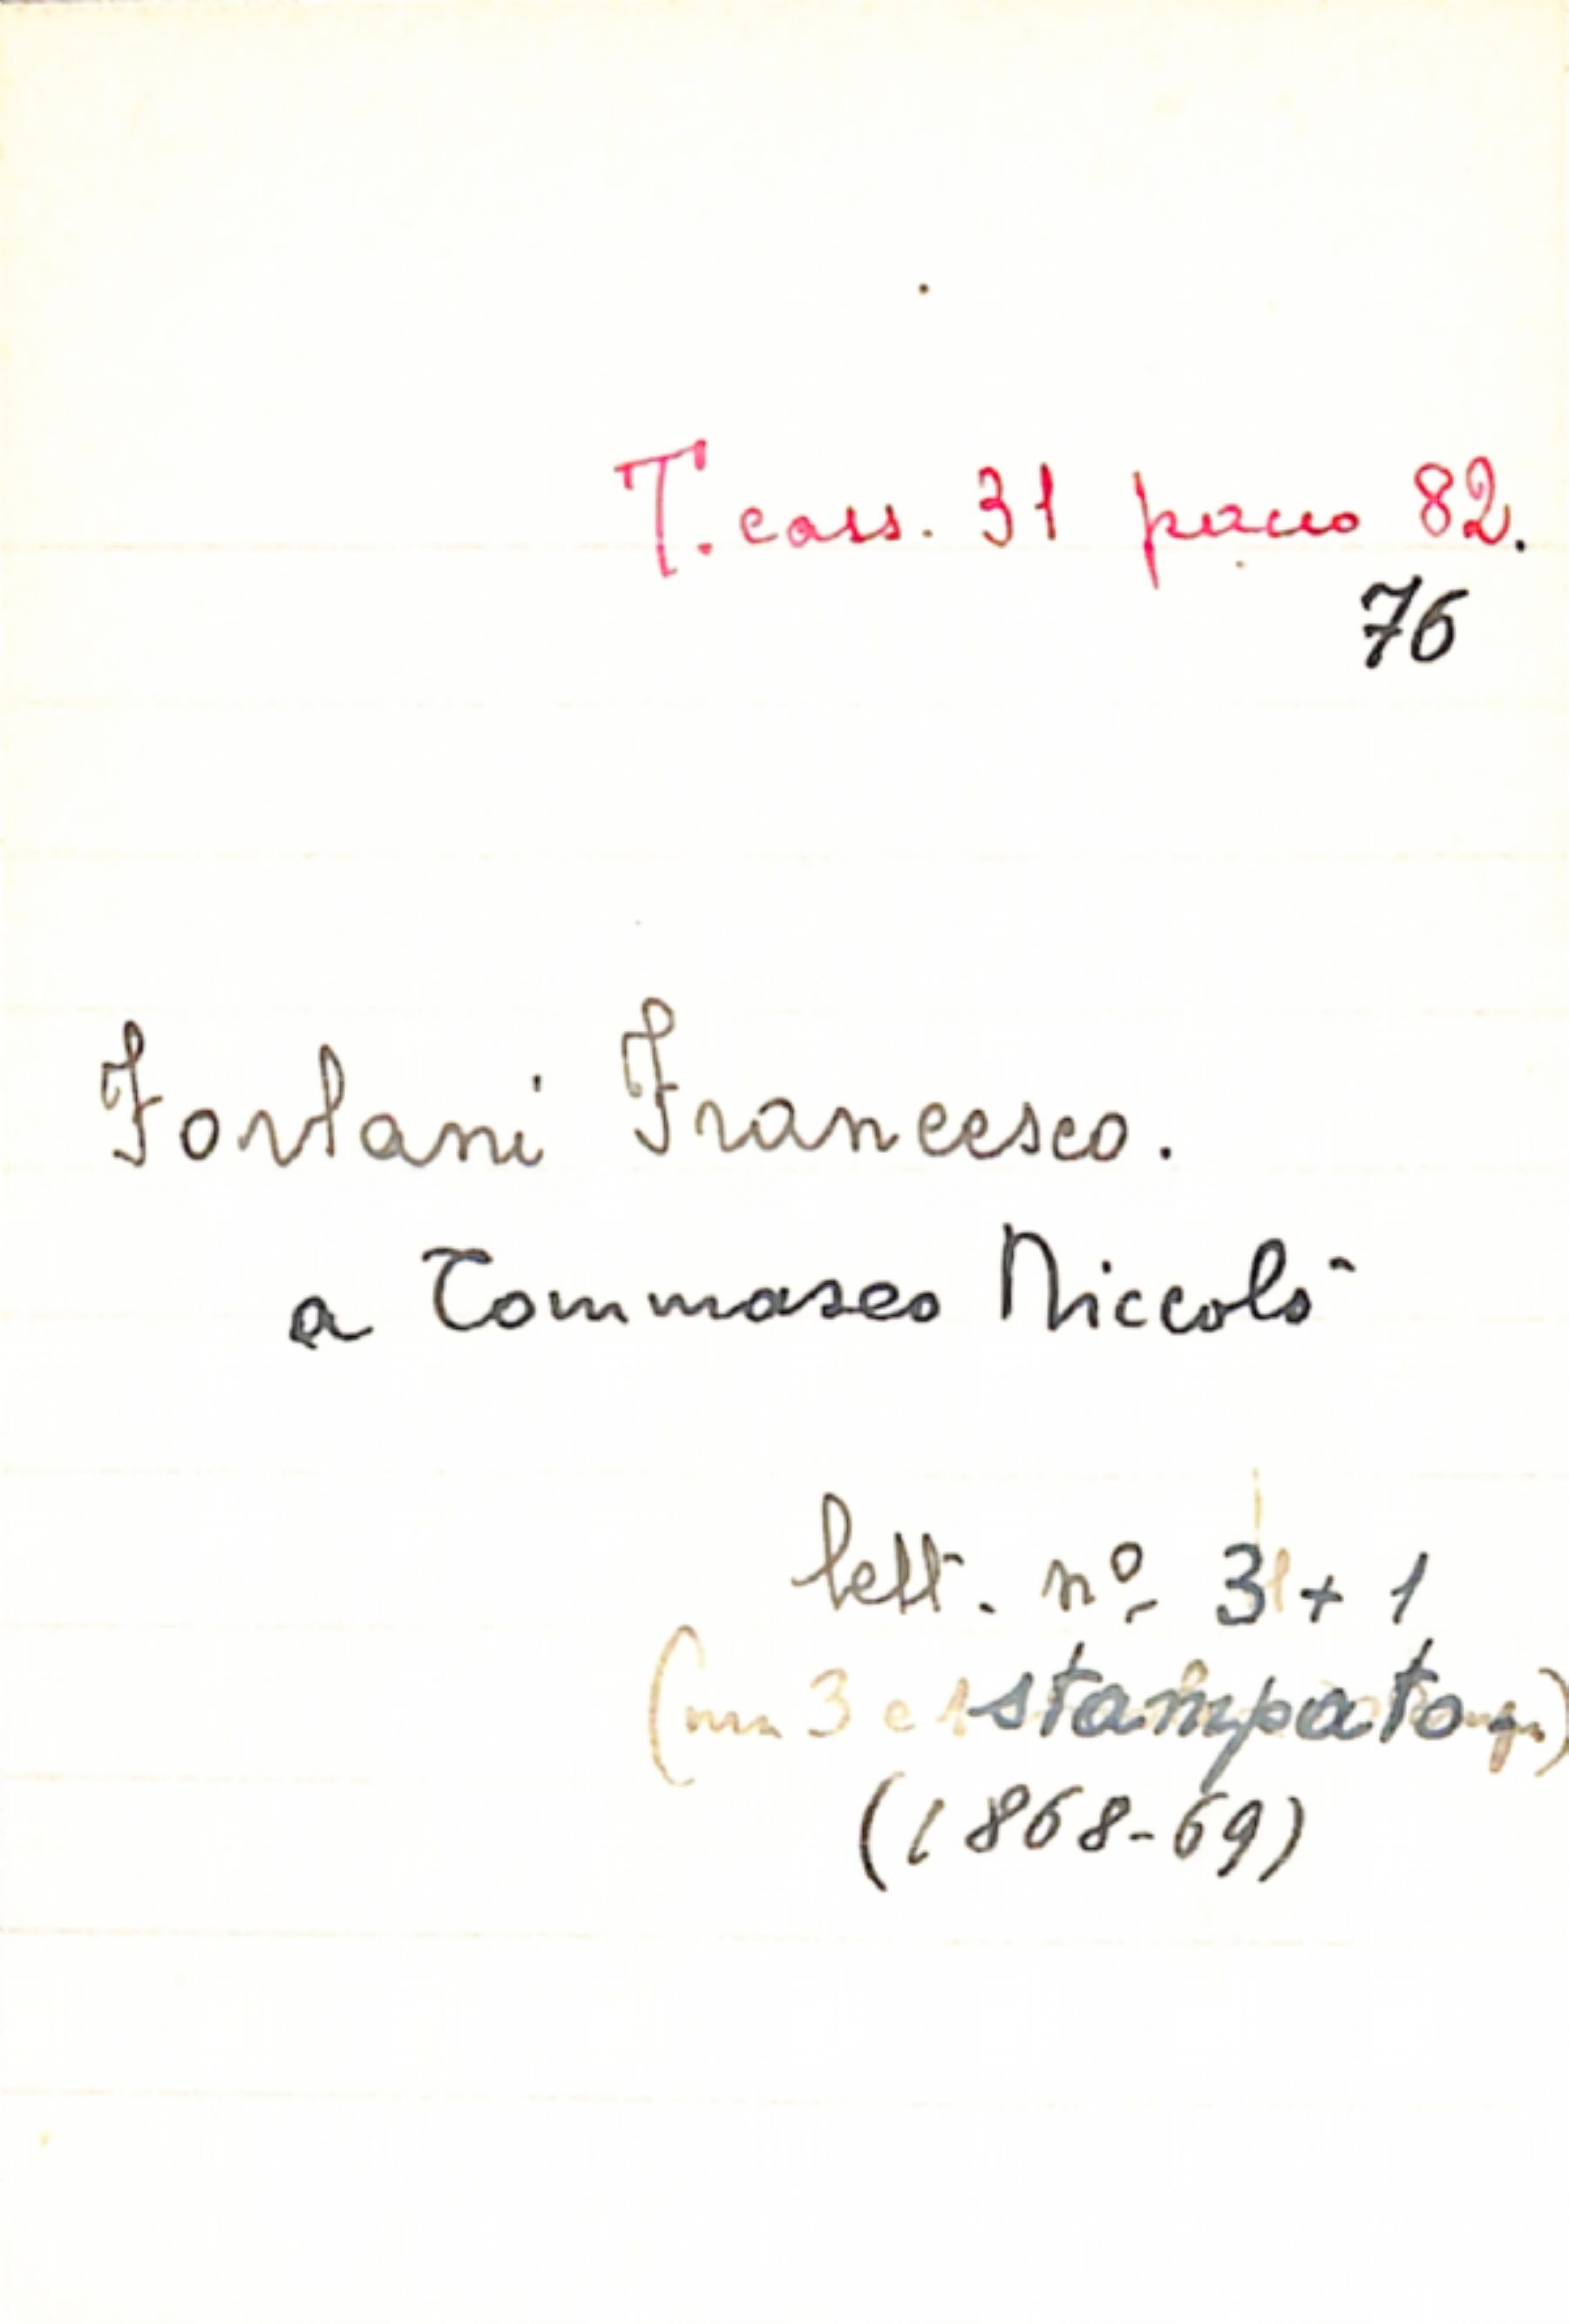 T. cass. 31 pacco 82.
76
Forlani Francesco.
a Tommaseo Niccolò
lett. nº 3 + 1
stampato
(1868-69)